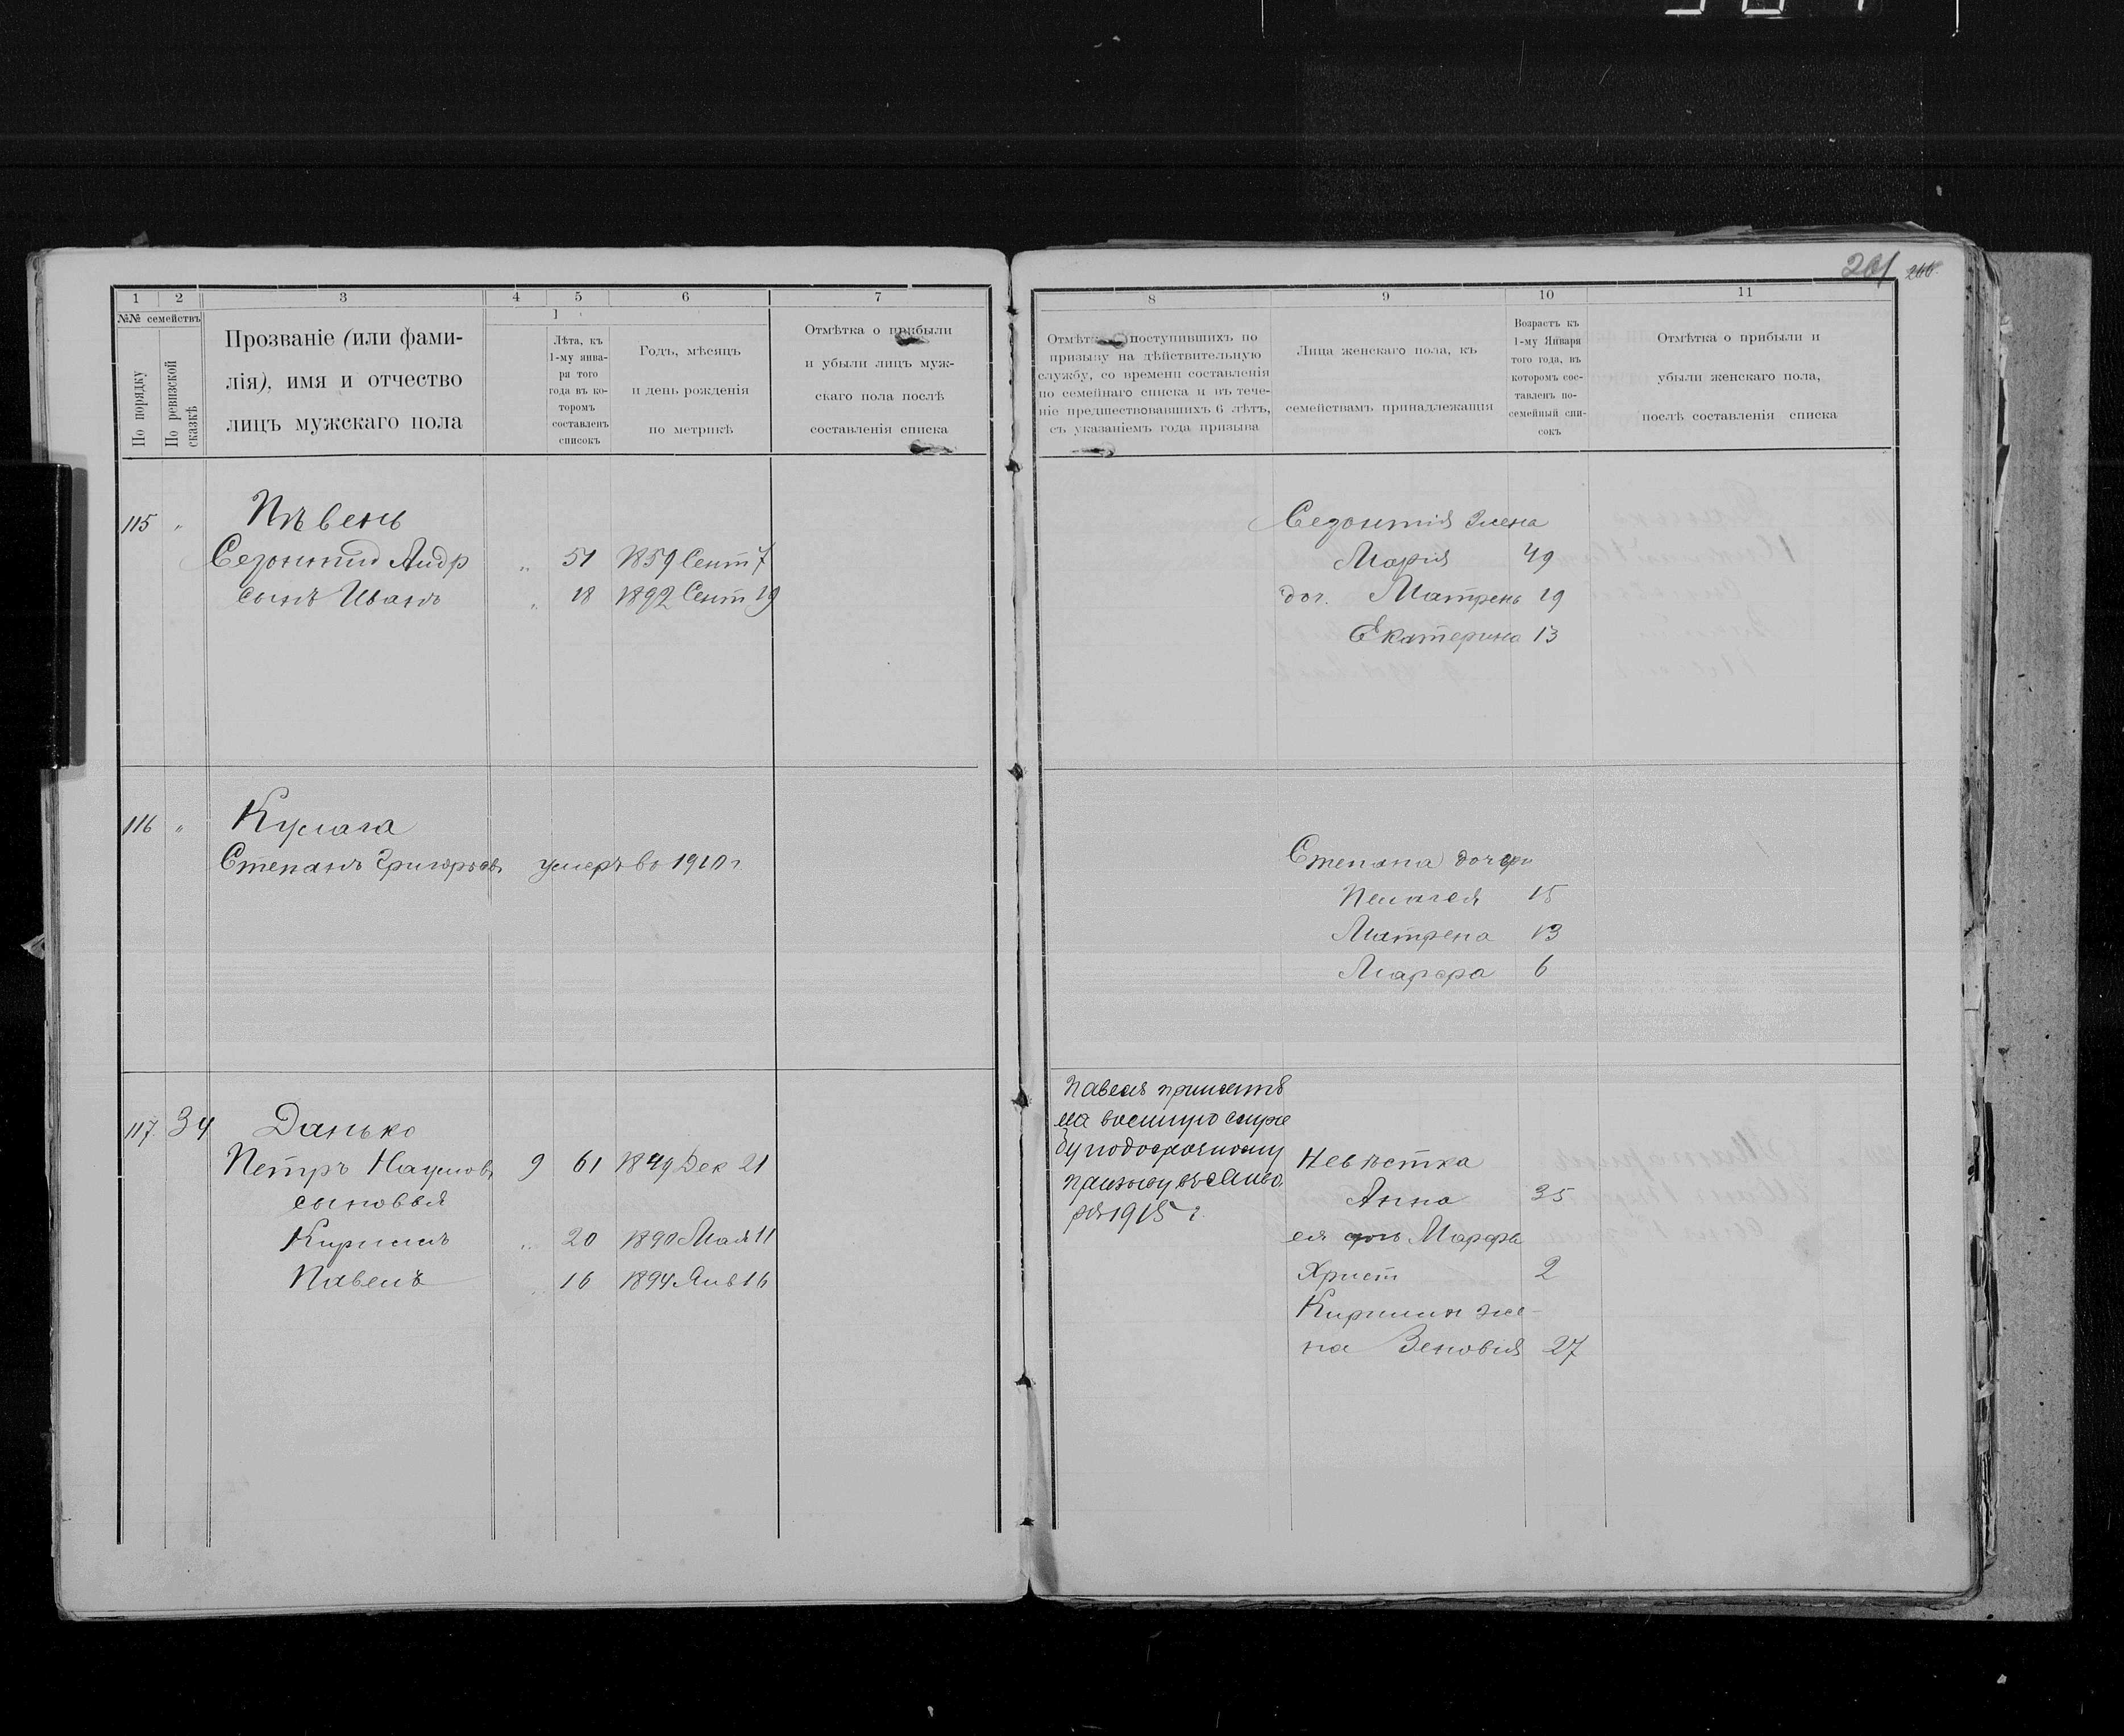 201 200.
1 2 3 4 5 6 7
№№ семействъ
По порядку
По ревизской сказкѣ
Прозваніе (или фами-
лія), имя и отчество
лицъ мужскаго пола
Лѣта, къ
1-му янва-
ря того
года въ ко-
торомъ
составленъ
списокъ
Годъ, мѣсяцъ
и день рожденія
по метрикѣ
Отмѣтка о прибыли
и убыли лицъ муж-
скаго пола послѣ
составленія списка
115 " Пѣвень
Созонтій Андр " 51 1859 Сент 7
сынъ Иванъ " 18 1892 Сент 19
116 " Кулага
Степанъ Григорьевъ умеръ въ 1910 г.
117 34 Данько
Петръ Наумовъ 9 61 1849 Дек 21
сыновья
Кириллъ " 20 1890 Мая 11
Павелъ " 16 1894 Янв 16
8 9 10 11
Отмѣтка о поступившихъ по
призыву на дѣйствительную
службу, со времени составленія
по семейнаго списка и въ тече-
ніе предшествовавшихъ 6 лѣтъ,
съ указаніемъ года призыва
Лица женскаго пола, къ
семействамъ принадлежащія
Возрастъ къ
1-му Января
того года, въ
которомъ сос-
тавленъ по-
семейный спи-
сокъ
Отмѣтка о прибыли и
убыли женскаго пола,
послѣ составленія списка
Созонтія жена
Марія 49
доч. Матрена 19
Екатерина 13
Степана дочери
Пелагея 15
Матрена 13
Марфа 6
Павелъ принятъ
на военную служ
бу по досрочному
призыву въ Янва
ря 1915 г.
Невѣстка
Анна 35
ея дочь Марфа
Христ 2
Кирилла же-
на Зеновія 27